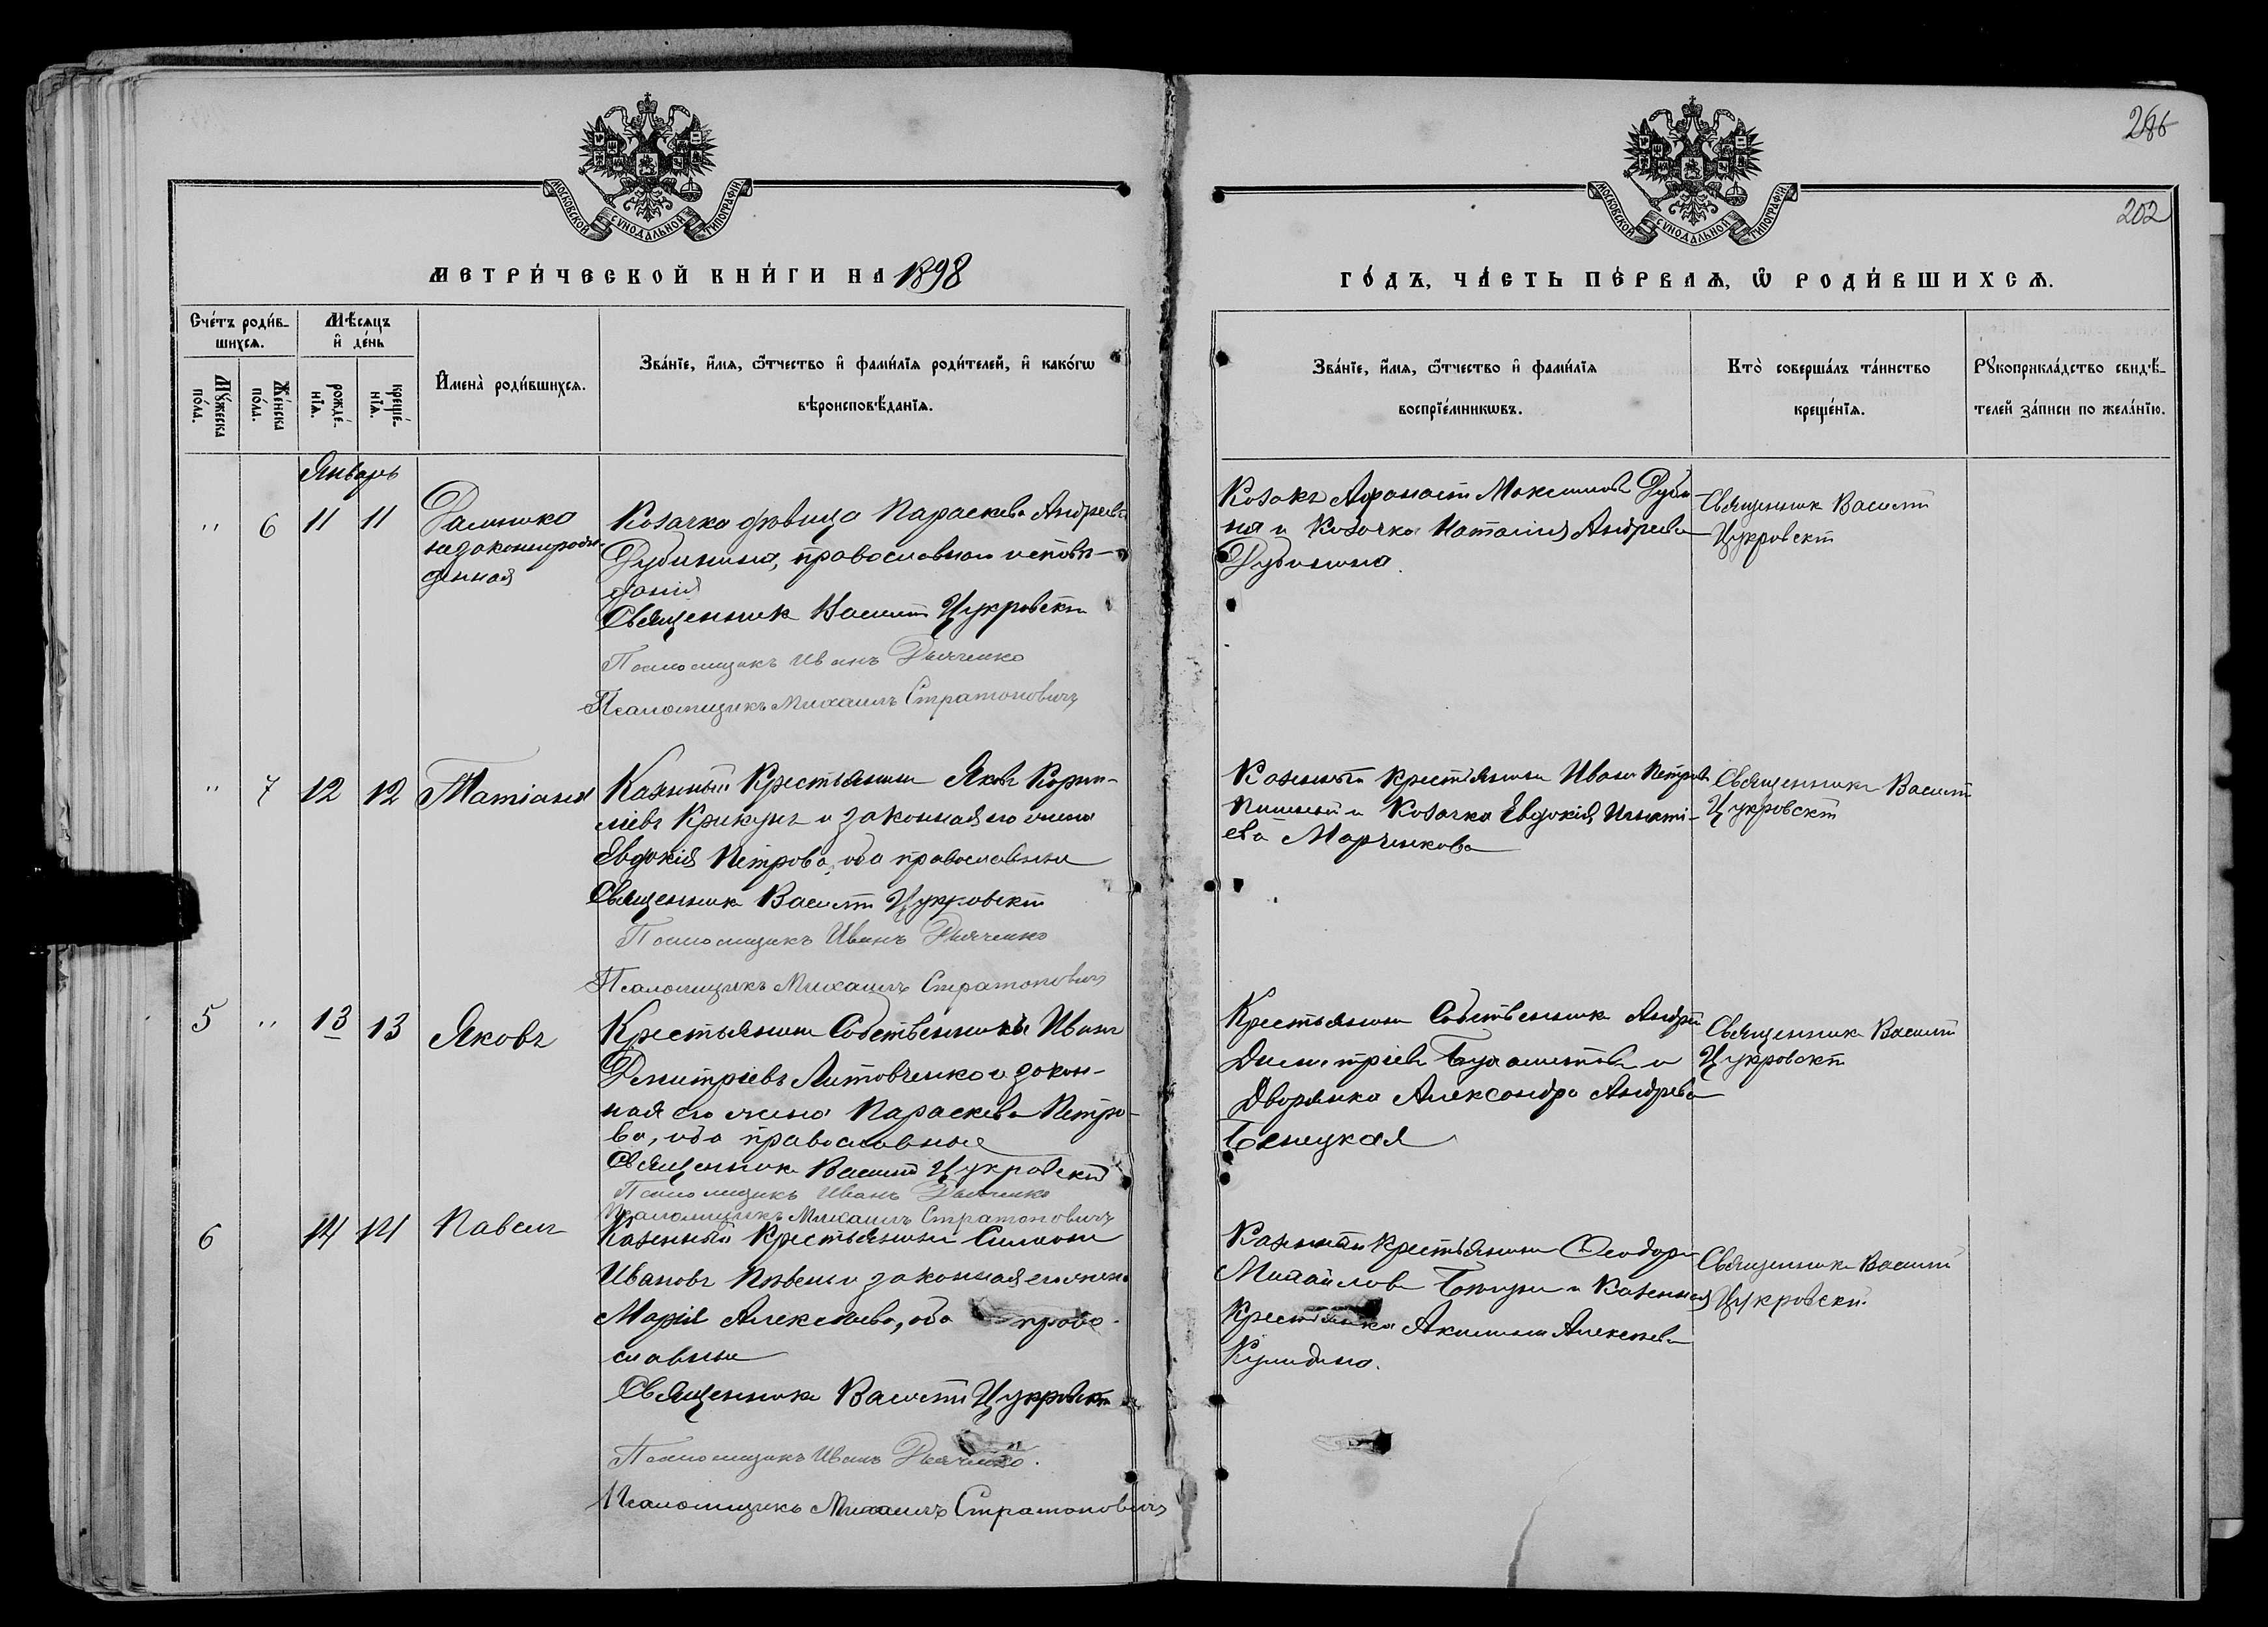 286
202
МОСКОВСКОЙ СѴНОДАЛЬНОЙ ТИПОГРАФІИ
МОСКОВСКОЙ СѴНОДАЛЬНОЙ ТИПОГРАФІИ
МЕТРИ́ЧЕСКОЙ КНИ́ГИ НА 1898
ГО́ДЪ, ЧА́СТЬ ПЕ́РВАѦ, Ѽ РОДИ́ВШИХСѦ.
Сче́тъ роди́в-
шихсѧ.
Мꙋ́жеска по́ла.
Же́нска по́ла.
Мѣ́сѧцъ
и҆ де́нь
рожде́-
нїѧ.
креще́-
нїѧ.
И҆мена̀ роди́вшихсѧ.
Зва́нїе, и҆́мѧ, ѻ҆́тчество и҆ фами́лїѧ роди́телей, и҆ како́гѡ
вѣроисповѣ́данїѧ.
Зва́нїе, и҆́мѧ, ѻ҆́тчество и҆ фами́лїѧ
воспрїе́мникѡвъ.
Кто̀ соверша́лъ та́инство
креще́нїѧ.
Рꙋкоприкла́дство свидѣ́-
телей за́писи по жела́нїю.
Январь
" 6 11 11
незаконнорож-
денная
Козачка дѣвица Параскева Андреева
Дубинина, православнаго исповѣ-
данія
Священник Василій Цукровскій
Псаломщикъ Иванъ Дьяченко
Псаломщикъ Михаилъ Стратоновичъ
Козакъ Афанасій Максимовъ Дуби-
на и Козачка Наталія Андреева
Дубинина.
Священник Василій
Цукровскій
" 7 12 12 Татіана
Казенный Крестьянинъ Яковъ Корни-
ліевъ Крикунъ и законная его жена
Евдокія Петрова, оба православные
Священник Василій Цукровскій
Псаломщикъ Иванъ Дьяченко
Псаломщикъ Михаилъ Стратоновичъ
Казенный крестьянинъ Иванъ Петровъ
и Козачка Евдокія Игнаті-
ева Марченкова
Священникъ Василій
Цукровскій
5 " 13 13 Яковъ
Крестьянинъ Собственникъ Иванъ
Димитріевъ Литовченко и закон-
ная его жена Параскева Петро-
ва, оба православные
Священник Василій Цукровскій
Псаломщикъ Иванъ Дьяченко
Псаломщикъ Михаилъ Стратоновичъ
Крестьянинъ Собственникъ Андрей
Димитріевъ и
Дворянка Александра Андреева
Священник Василій
Цукровскій
6 14 14 Павелъ
Казенный Крестьянинъ Симеонъ
Ивановъ Пивень и законная его жена
Марія Алексѣева, оба право-
славные
Священникъ Василій Цукровскій
Псаломщикъ Иванъ Дьяченко.
Псаломщикъ Михаилъ Стратоновичъ
Казенный крестьянинъ Ѳеодоръ
Михайловъ и Казенная
Крестьянка Акилина Алексѣева
Священник Василій
Цукровскій